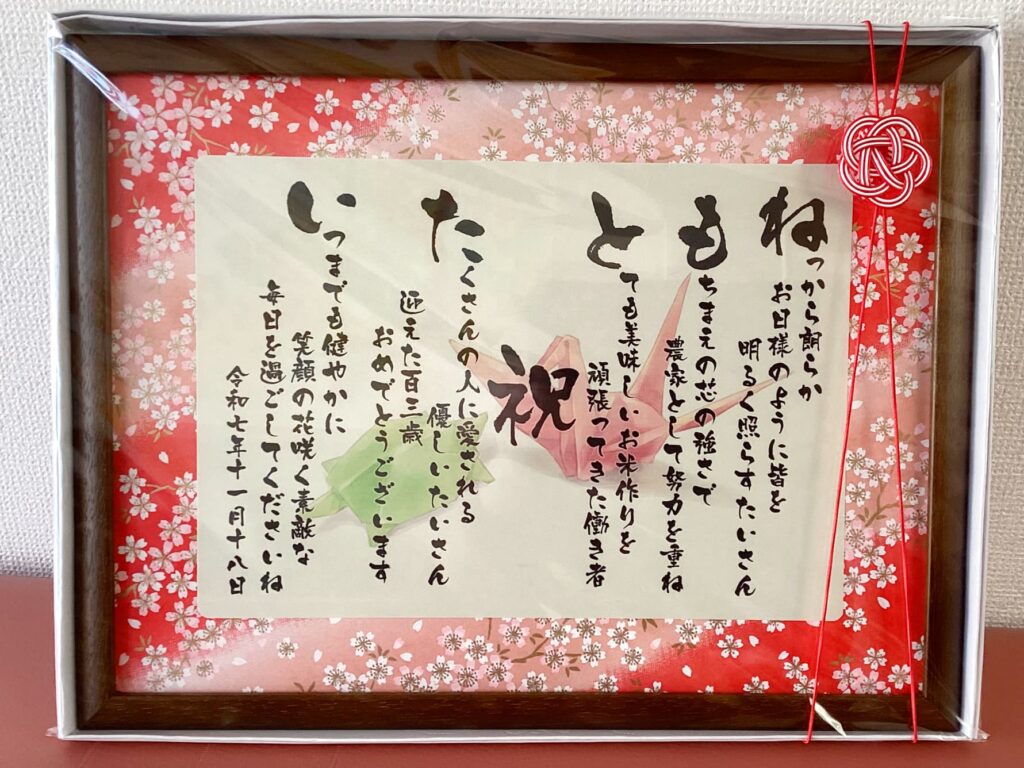 ねっから朗らか
お日様のように皆を
明るく照らすたいさん
もちまえの芯の強さで
農家として努力を重ね
とても美味しいお米作りを
頑張ってきた働き者
祝
たくさんの人に愛される
優しいたいさん
迎えた百三歳
おめでとうございます
いつまでも健やかに
笑顔の花咲く素敵な
毎日を過ごしてくださいね
令和七年十一月十八日